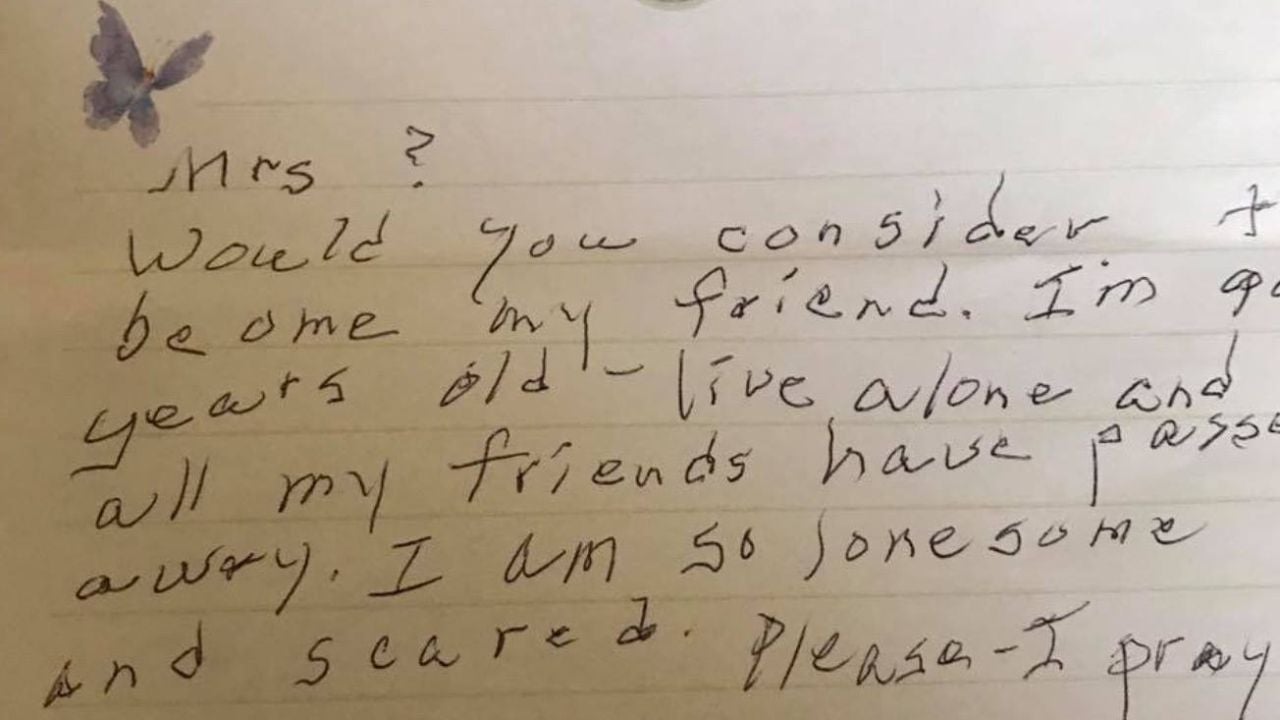 Mrs ?
Would you consider t
be ome my friend. I'm 90
years old - live alone and
all my friends have passe
away. I am so lonesome
and scared. Please - I pray